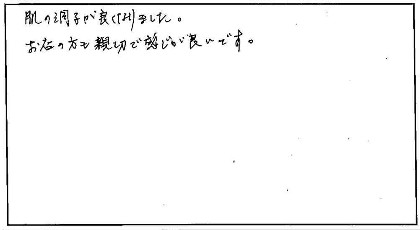 肌の調子が良くなりました。
お店の方も親切で感じが良いです。